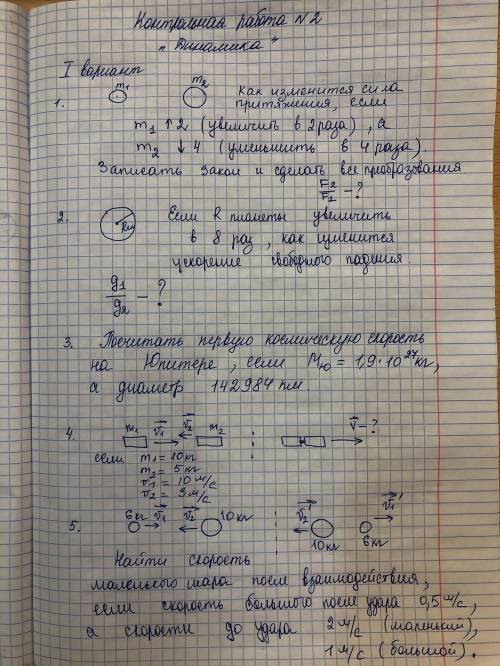 Контрольная работа №2
"Динамика"
I вариант
1. m₁ m₂ Как изменится сила
притяжения, если
m₁ ↑ 2 (увеличить в 2 раза), а
m₂ ↓ 4 (уменьшить в 4 раза).
Записать закон и сделать все преобразования.
F₂/F₁ - ?
2. Rпл Если R планеты увеличить
в 8 раз, как изменится
ускорение свободного падения.
g₁/g₂ - ?
3. Посчитать первую космическую скорость
на Юпитере, если Mю = 1,9·10²⁷кг,
а диаметр 142984 км
4. m₁ v₁ v₂ m₂ v - ?
если m₁ = 10кг
m₂ = 5 кг
v₁ = 10 м/с
v₂ = 3м/с
5. 6кг v₁ v₂ 10кг v₂' v₁'
10кг 6кг
Найти скорость
маленького шара после взаимодействия,
если скорость большого после удара 0,5 м/с,
а скорости до удара 2 м/с (маленький),
1 м/с (большой).